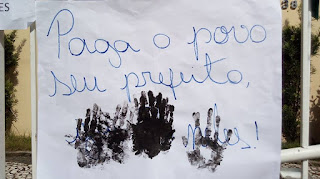 ES
Paga o povo
seu prefeito,